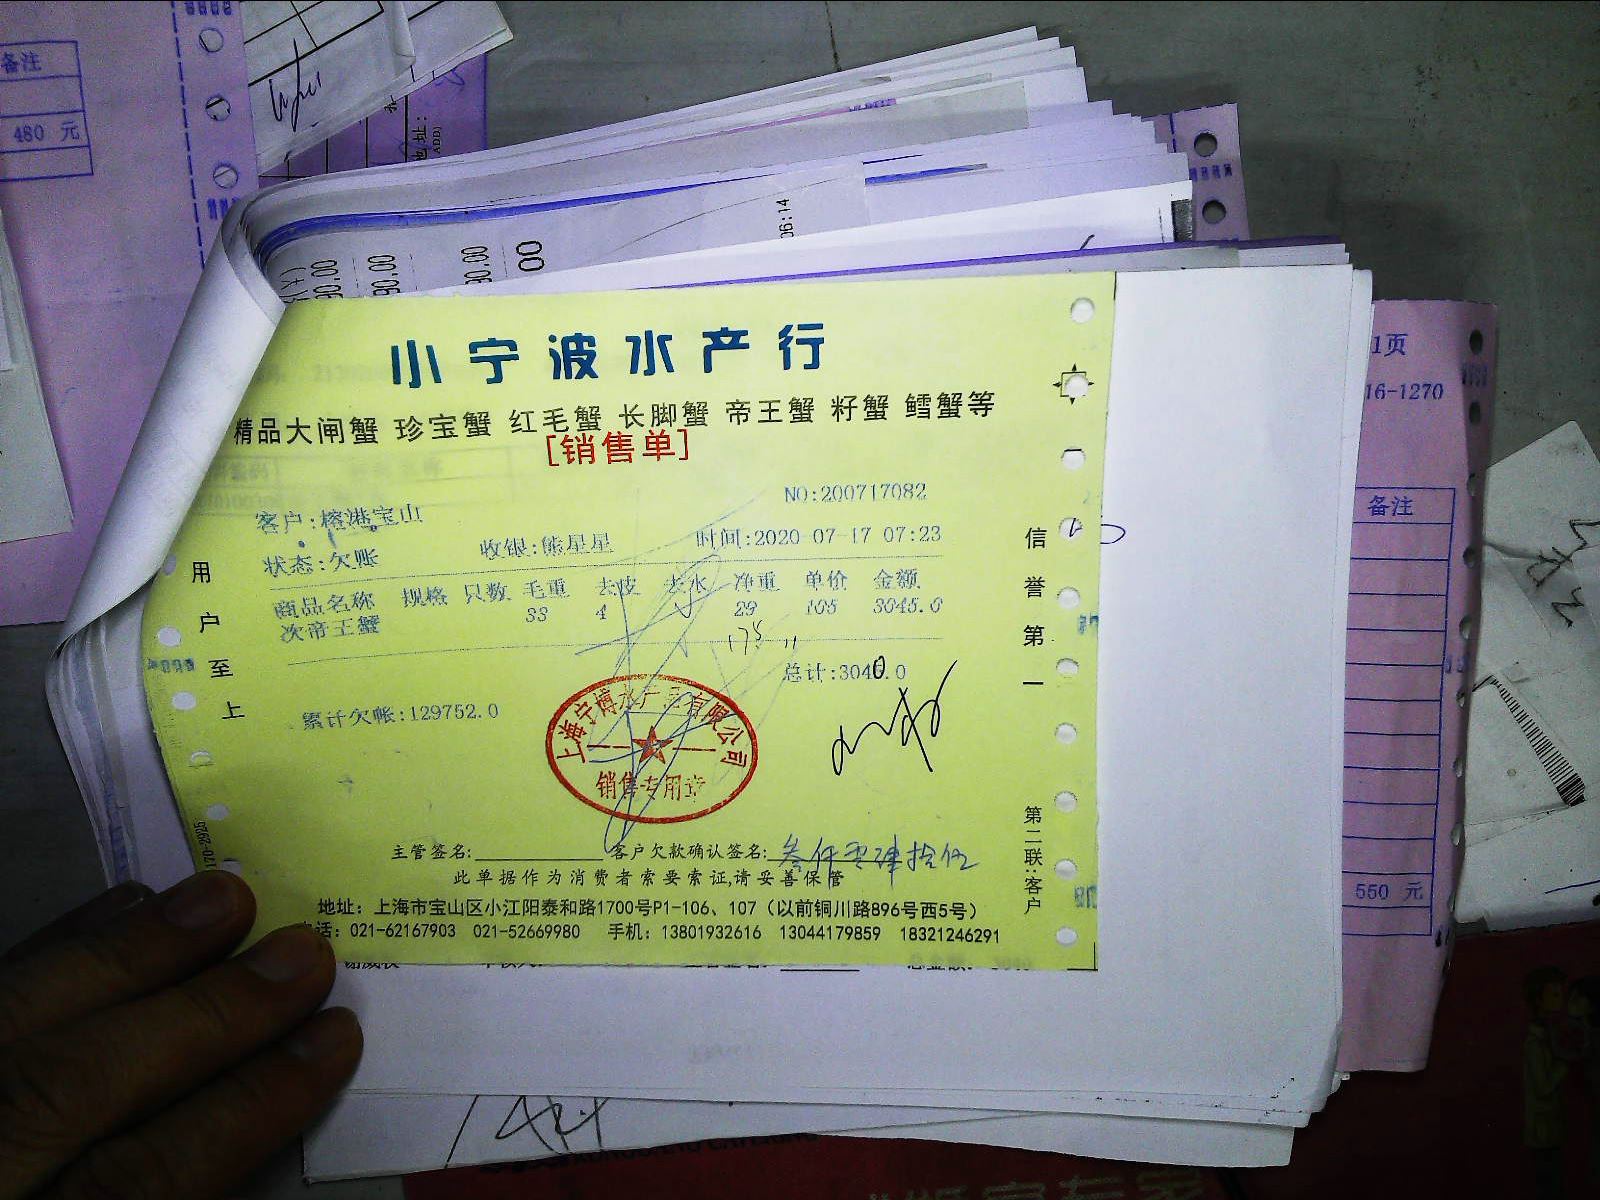 备注
480 元
06:14
90.00
90.00
90.00
00
小宁波水产行
精品大闸蟹 珍宝蟹 红毛蟹 长脚蟹 帝王蟹 籽蟹 鳕蟹等
[销售单]
NO:200717082
客户:榕港宝山
状态:欠账 收银:熊星星 时间:2020-07-17 07:23
商品名称 规格 只数 毛重 去皮 去水 净重 单价 金额
次帝王蟹 33 4 29 105 3045.0
175
总计:3040.0
累计欠帐:129752.0
用户至上
信誉第一
第二联:客户
上海宁博水产品有限公司
销售专用章
主管签名: 客户欠款确认签名: 叁仟零肆拾伍
此单据作为消费者索要索证,请妥善保管
地址: 上海市宝山区小江阳泰和路1700号P1-106、107 (以前铜川路896号西5号)
话: 021-62167903 021-52669980 手机: 13801932616 13044179859 18321246291
1页
16-1270
备注
550 元